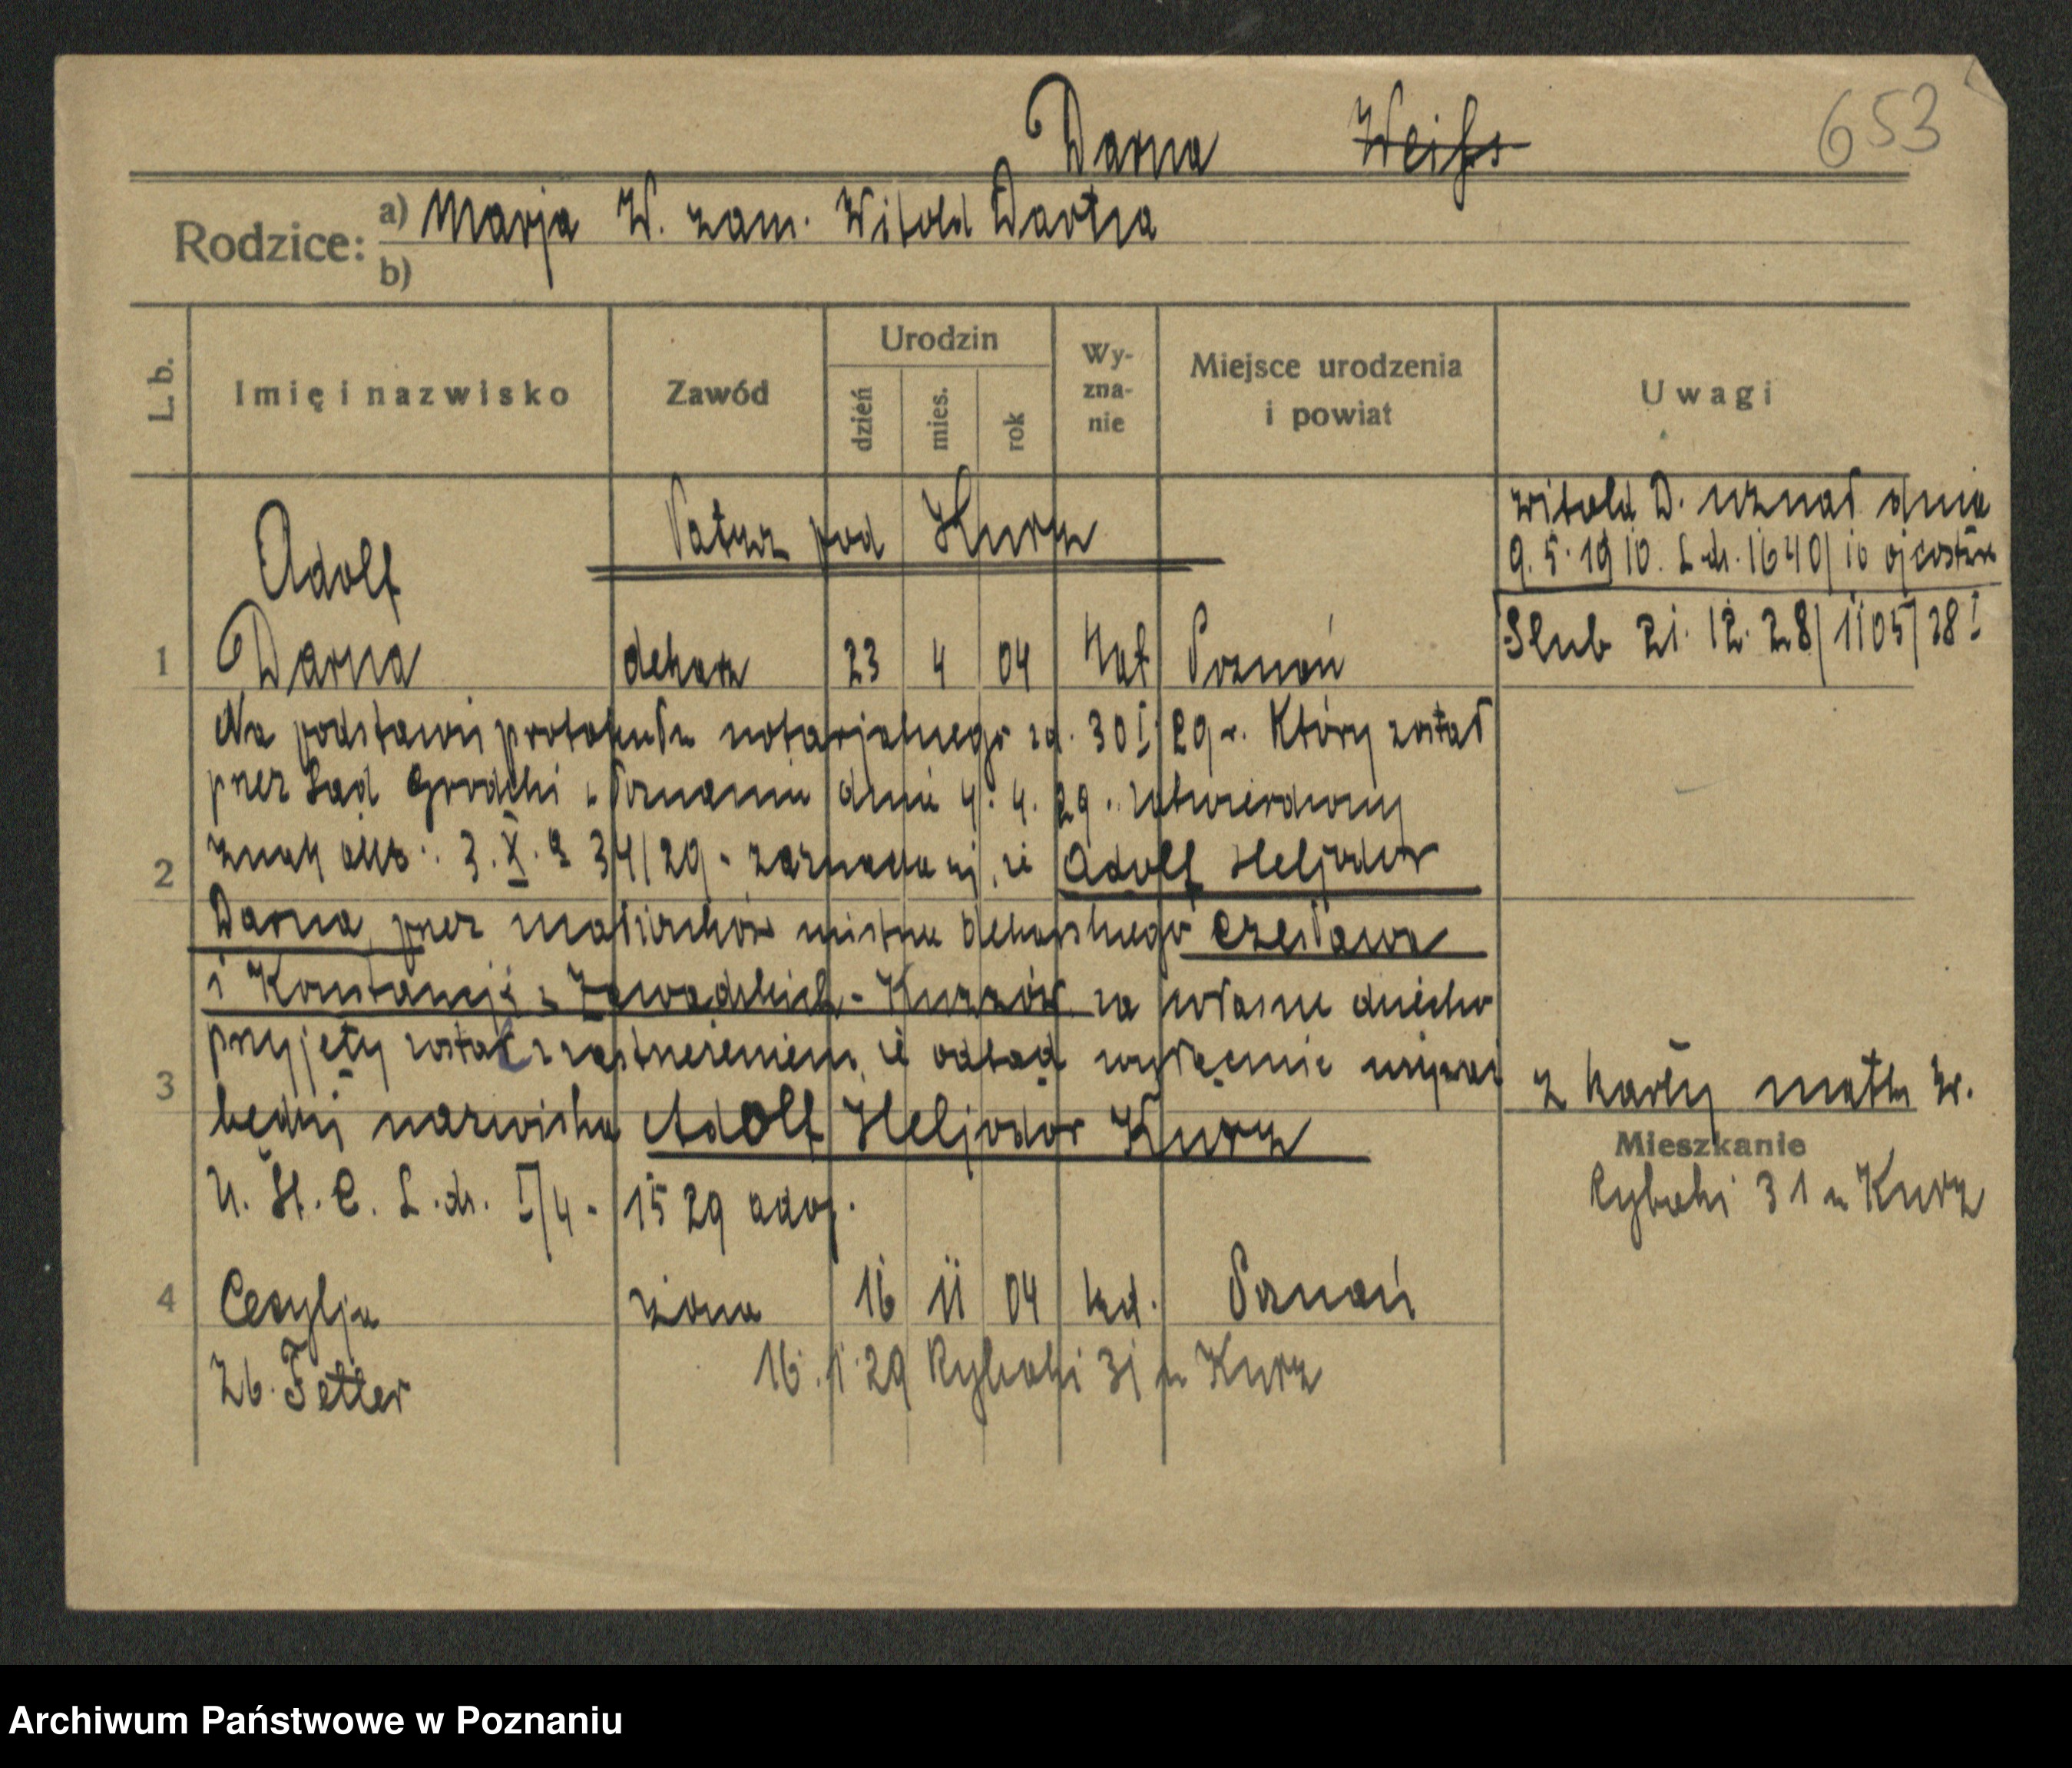 653
Darna Weiss
Rodzice: a) Marja W. zam. Witold Darna
b)
L. b. Imię i nazwisko Zawód Urodzin dzień mies. rok Wyznanie Miejsce urodzenia i powiat Uwagi
Patrz pod Kurz
Witold D. uznał dnia
9. 5. 1910. L. dz. 1640/10 ojcostwo
Adolf
Ślub 21. 12. 28/1105/28 I
1 Darna dekarz 23 4 04 kat Poznań
Na podstawie protokułu notarjalnego zd. 30 I 29 r. Który został
przez Sąd Grodzki w Poznaniu dnia 4. 4. 29 r. zatwierdzony
znak akt: 3. X. 34/29 - zaznacza się, że Adolf Heljodor
2
Darna przez małżonków mistrza dekarskiego Czesława
i Konstancji z Zawadzkich - Kurzów za własne dziecko
przyjęty został z zastrzeżeniem, że odtąd wyłącznie używać
3
z karty matki W.
będzie nazwiska Adolf Heljodor Kurz
Mieszkanie
U. St. C. L. dz. I/4 - 1529 adop.
Rybaki 31 u Kurz
4 Cecylja żona 16 11 04 kat. Poznań
Zb. Fetter 16. 1. 29 Rybaki 31 u Kurz
Archiwum Państwowe w Poznaniu